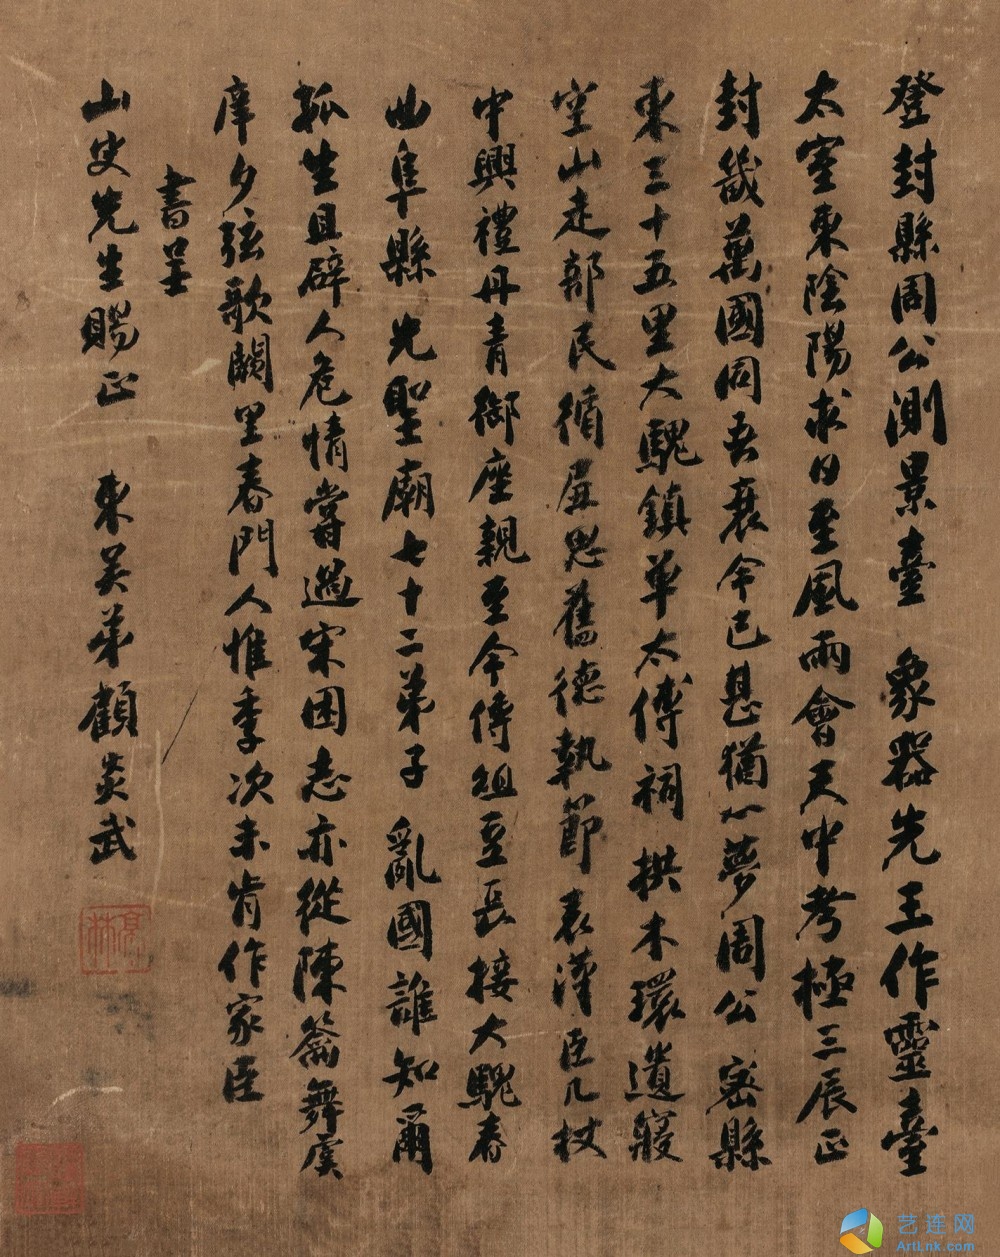 登封縣周公測景臺 象器先王作靈臺
太室東陰陽求日至風雨會天中考極三辰正
封畿萬國同吾衰今已甚猶夢周公 密縣
東三十五里大騩鎮卓太傅祠 拱木環遺寢
空山走部民循良思舊德執節表漢臣几杖
中興禮丹青御座親至今傳俎豆長接大騩春
曲阜縣先聖廟七十二弟子 亂國誰知爾
孤生且辟人危情嘗過宋困志亦從陳籥舞虞
庠夕弦歌闕里春門人惟季次未肯作家臣
書呈
山史先生賜正 東吳弟顧炎武
亭林
艺连网
ArtLnk.com